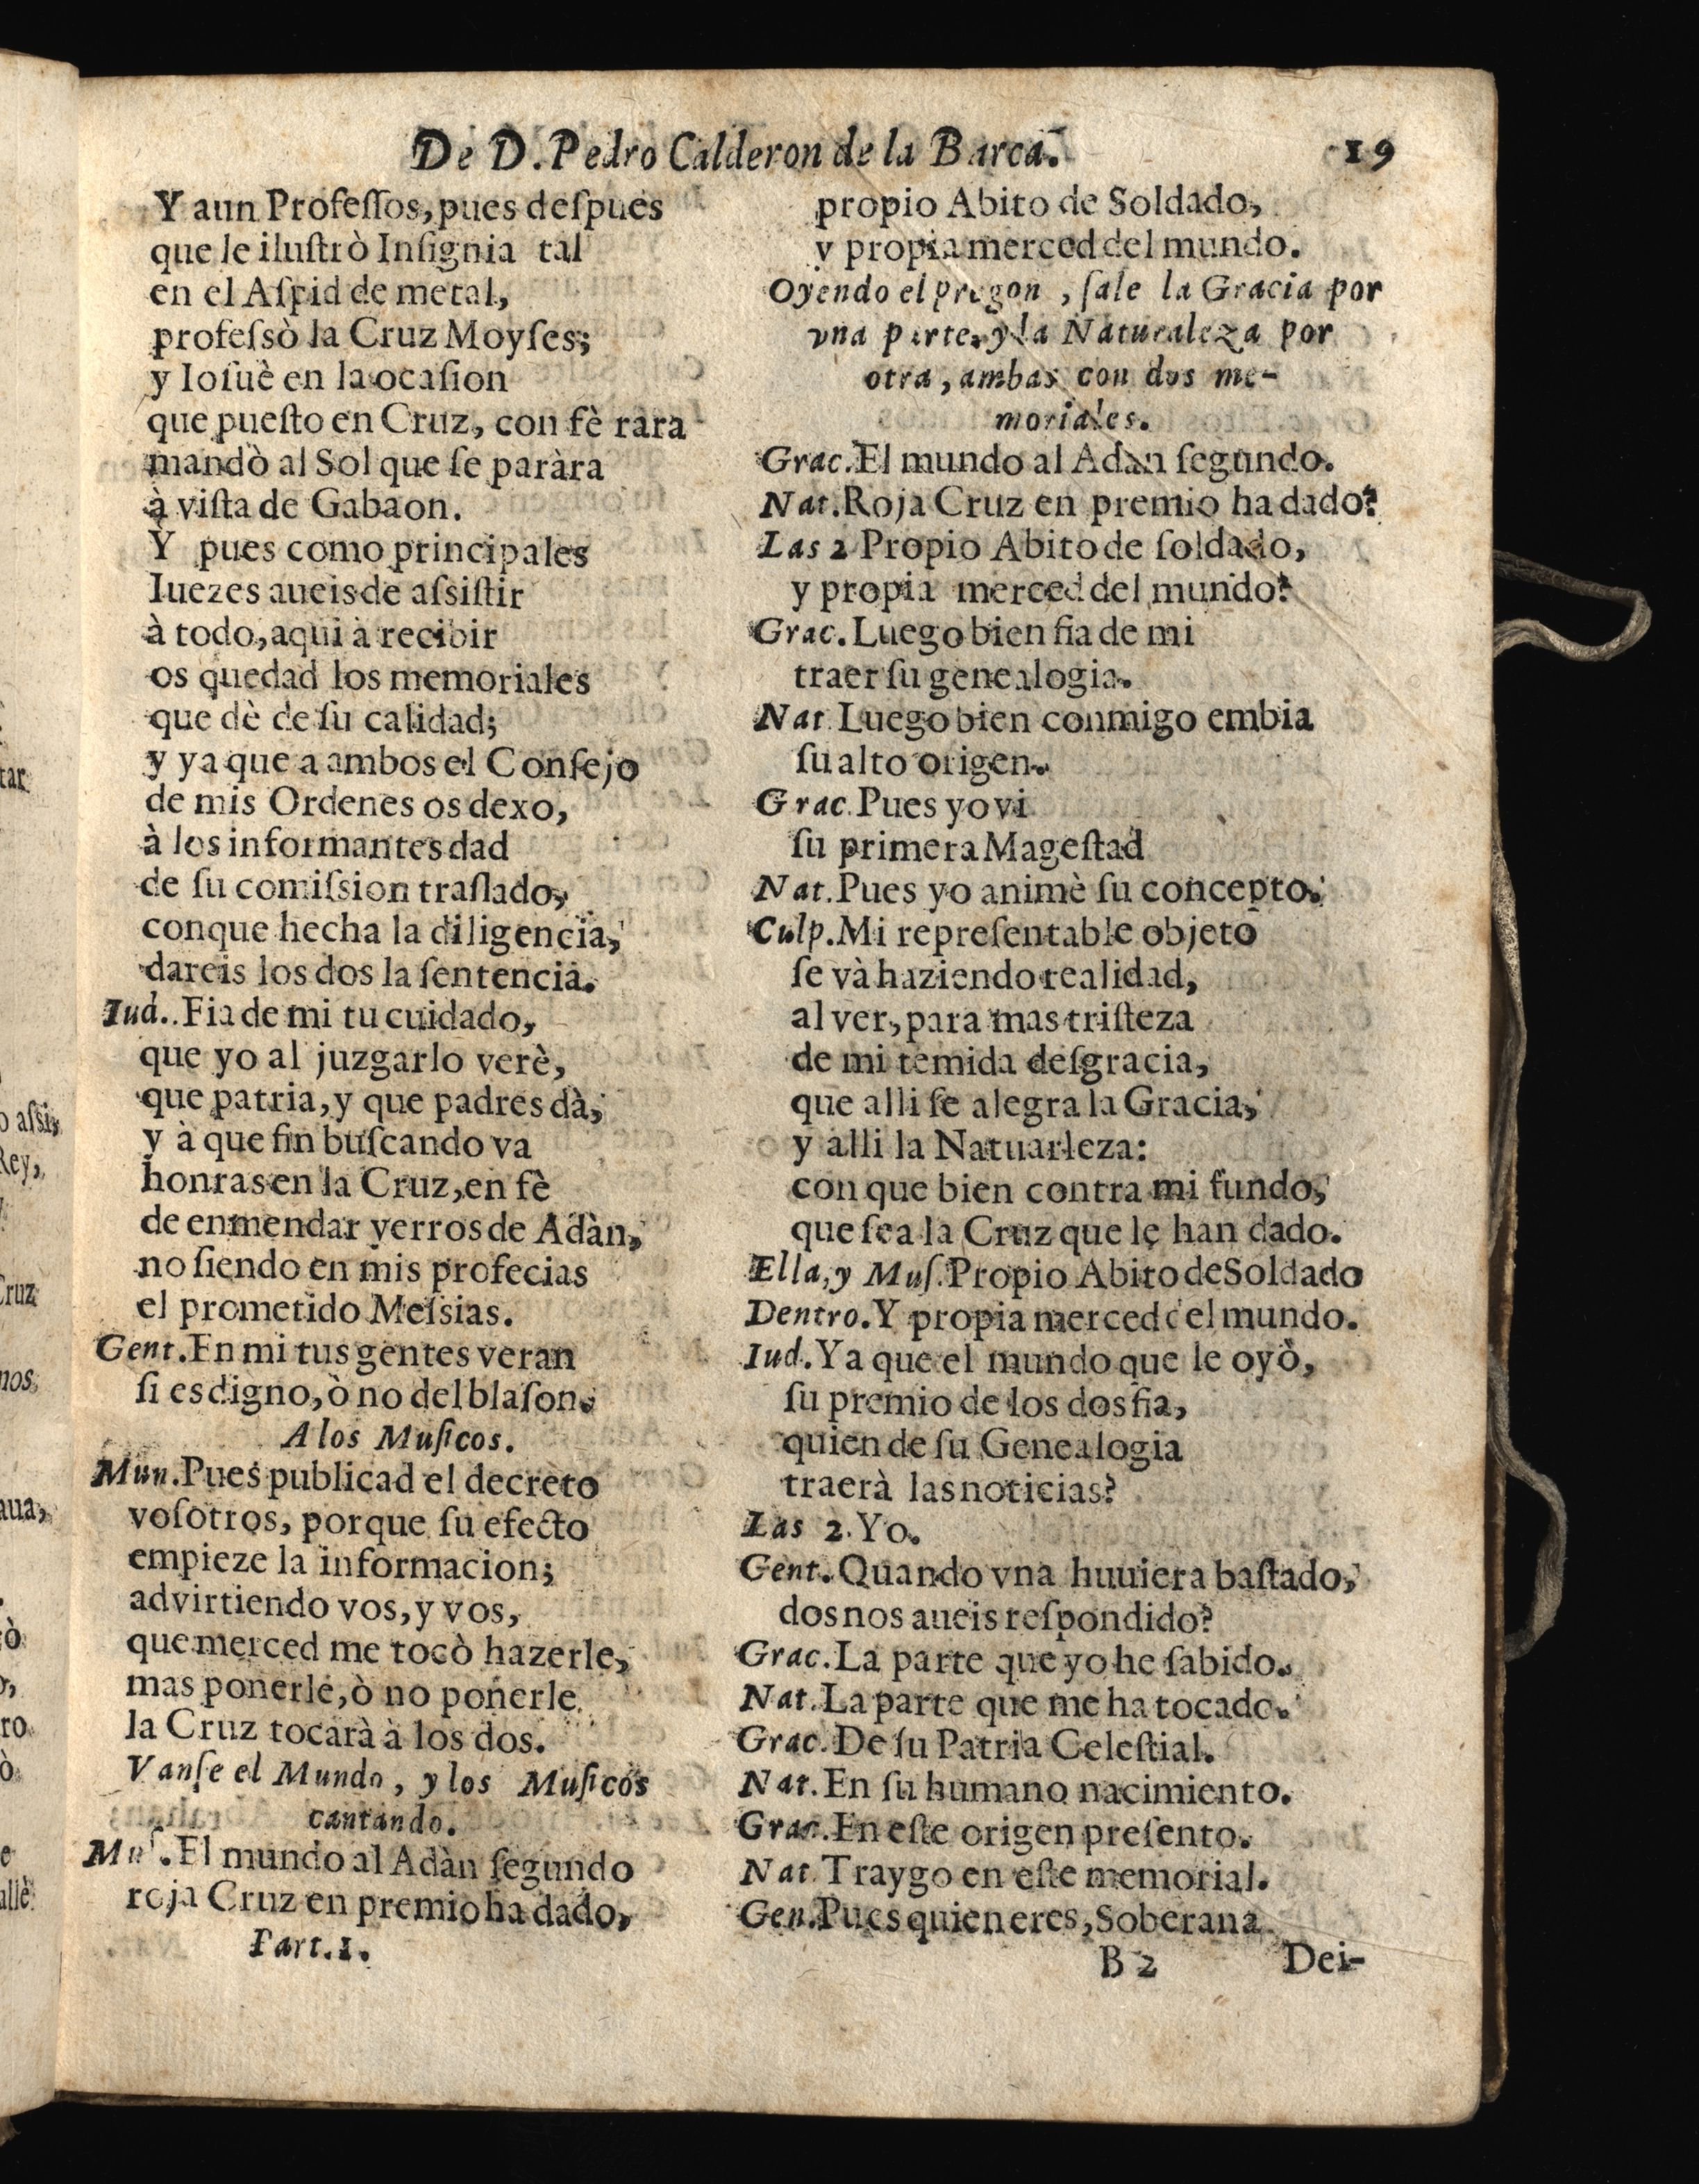 De D. Pedro Calderon de la Barca. 19
Y aun Profeſſos, pues deſpues
que le iluſtrò Inſignia tal
en el Aſpid de metal,
profeſsò la Cruz Moyſes;
y Ioſuè en la ocaſion
que pueſto en Cruz, con fè rara
mandò al Sol que ſe paràra
à viſta de Gabaon.
Y pues como principales
Iuezes aueis de aſsiſtir
à todo, aqui à recibir
os quedad los memoriales
que dè de ſu calidad;
y ya que a ambos el Conſejo
de mis Ordenes os dexo,
à los informantes dad
de ſu comiſsion traſlado,
conque hecha la diligencia,
dareis los dos la ſentencia.
Iud. Fia de mi tu cuidado,
que yo al juzgarlo verè,
que patria, y que padres dà,
y à que fin buſcando va
honras en la Cruz, en fè
de enmendar yerros de Adàn,
no ſiendo en mis profecias
el prometido Meſsias.
Gent. En mi tus gentes veran
ſi es digno, ò no del blaſon.
A los Muſicos.
Mun. Pues publicad el decreto
voſotros, porque ſu efecto
empieze la informacion;
advirtiendo vos, y vos,
que merced me tocò hazerle,
mas ponerle, ò no ponerle
la Cruz tocarà à los dos.
Vanſe el Mundo, y los Muſicos
cantando.
Muſ. El mundo al Adàn ſegundo
roja Cruz en premio ha dado,
Part. 1.
propio Abito de Soldado,
y propia merced del mundo.
Oyendo el pregon, ſale la Gracia por
vna parte, y la Naturaleza por
otra, ambas con dos me-
moriales.
Grac. El mundo al Adàn ſegundo.
Nat. Roja Cruz en premio ha dado?
Las 2 Propio Abito de ſoldado,
y propia merced del mundo?
Grac. Luego bien fia de mi
traer ſu genealogia.
Nat. Luego bien conmigo embia
ſu alto origen.
Grac. Pues yo vi
ſu primera Mageſtad
Nat. Pues yo animè ſu concepto.
Culp. Mi repreſentable objeto
ſe và haziendo realidad,
al ver, para mas triſteza
de mi temida deſgracia,
que alli ſe alegra la Gracia,
y alli la Natuarleza:
con que bien contra mi fundo,
que ſea la Cruz que le han dado.
Ella, y Muſ. Propio Abito de Soldado
Dentro. Y propia merced del mundo.
Iud. Ya que el mundo que le oyò,
ſu premio de los dos fia,
quien de ſu Genealogia
traerà las noticias?
Las 2. Yo.
Gent. Quando vna huuiera baſtado,
dos nos aueis reſpondido?
Grac. La parte que yo he ſabido.
Nat. La parte que me ha tocado.
Grac. De ſu Patria Celeſtial.
Nat. En ſu humano nacimiento.
Grac. En eſte origen preſento.
Nat. Traygo en eſte memorial.
Gen. Pues quien eres, Soberana
B 2 Dei-